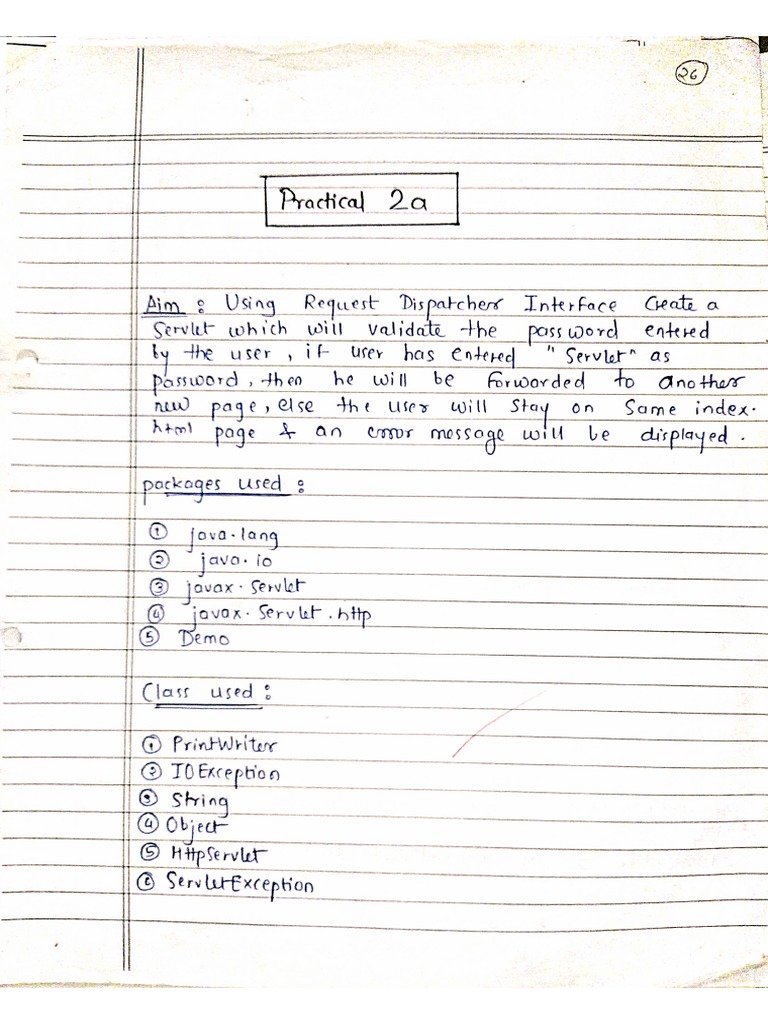 26
Practical 2a
Aim : Using Request Dispatcher Interface Create a
Servlet which will validate the password entered
by the user, if user has entered "Servlet" as
password, then he will be forworded to another
new page, else the user will stay on same index.
html page & an error message will be displayed.
packages used :
① java.lang
② java.io
③ javax.servlet
④ javax.servlet.http
⑤ Demo
Class used :
① PrintWriter
② IOException
③ String
④ Object
⑤ HttpServlet
⑥ ServletException